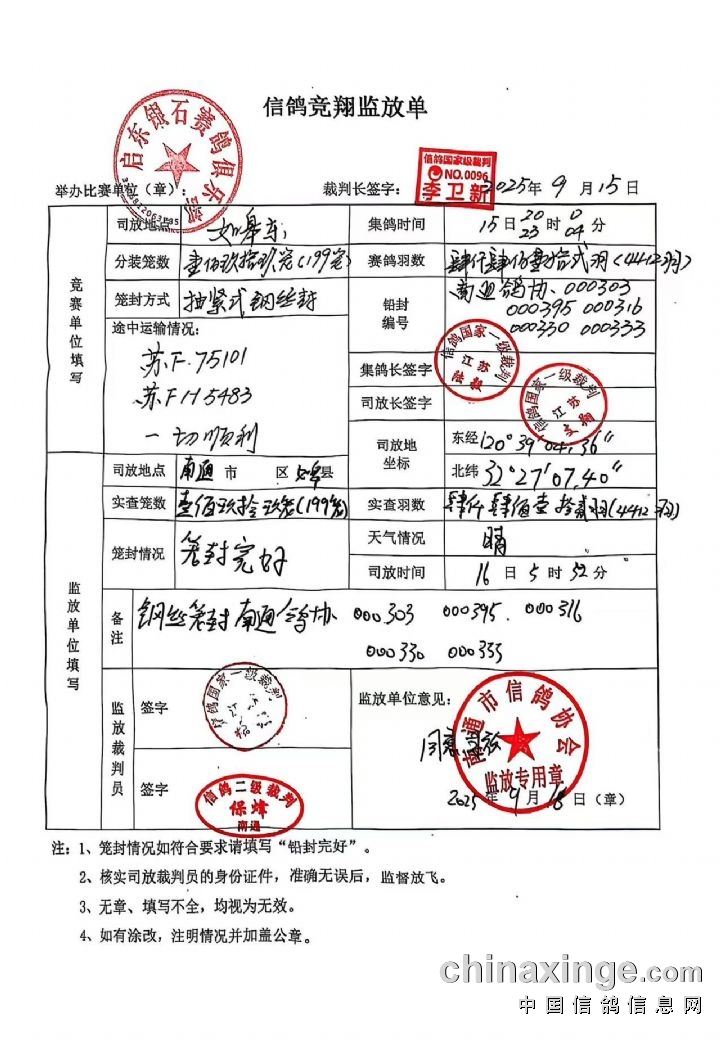 信鸽竞翔监放单
启东银石赛鸽俱乐部
信鸽国家级裁判
NO.0096
李卫新
举办比赛单位（章）： 裁判长签字： 2025年 9 月 15 日
竞赛单位填写
司放地点 如皋东
集鸽时间 15 日 20 时 0 分
23 04
分装笼数 壹佰玖拾玖笼(199笼)
赛鸽羽数 肆仟肆佰壹拾弍羽(4412羽)
笼封方式 抽紧式钢丝封
铅封编号 南通鸽协 000303
000395 000316
000330 000333
途中运输情况：
苏F·75101
苏FH5483
一切顺利
集鸽长签字
信鸽国家一级裁判 江苏
司放长签字
信鸽国家一级裁判 江苏
司放地坐标
东经 120°39′04.36″
北纬 32°27′07.40″
监放单位填写
司放地点 南通 市 区 如皋 县
实查笼数 壹佰玖拾玖笼(199笼)
实查羽数 肆仟肆佰壹拾贰羽(4412羽)
笼封情况 笼封完好
天气情况 晴
司放时间 16 日 5 时 52 分
备注 钢丝笼封南通鸽协 000303 000395. 000316
000330 000333
监放裁判员
签字
信鸽国家一级裁判 江苏
签字
信鸽二级裁判
保烽
南通
监放单位意见：
同意司放
南通市信鸽协会
监放专用章
2025 年 9 月 18 日（章）
注：1、笼封情况如符合要求请填写“铅封完好”。
2、核实司放裁判员的身份证件，准确无误后，监督放飞。
3、无章、填写不全，均视为无效。
4、如有涂改，注明情况并加盖公章。
chinaxinge.com
中国信鸽信息网